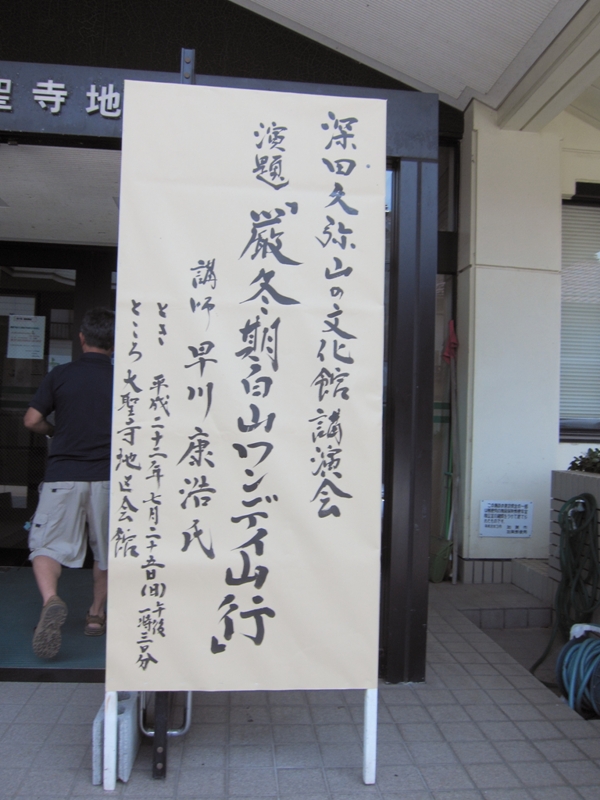 聖寺地
深田久弥山の文化館 講演会
演題「厳冬期白山ワンデイ山行」
講師 早川康浩氏
とき 平成二十二年七月二十五日(日)午後一時三〇分
ところ 大聖寺地区会館